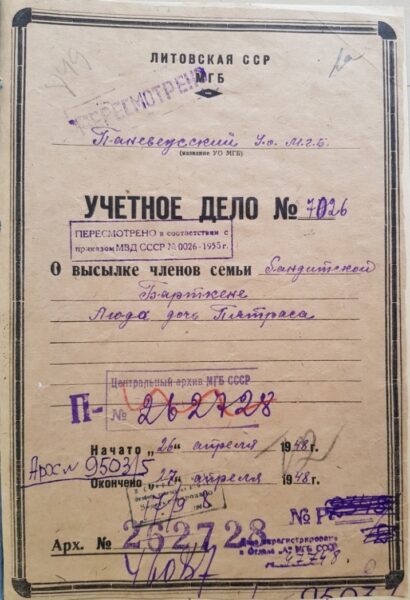 449
ЛИТОВСКАЯ ССР
МГБ
ПЕРЕСМОТРЕНО
Паневежсский У.о. М.Г.Б.
(название УО МГБ)
УЧЕТНОЕ ДЕЛО № 7026
ПЕРЕСМОТРЕНО в соответствии с
приказом МВД СССР № 0026-1955 г.
О высылке членов семьи бандитской
Барткене
Люда дочь Пятраса
Центральный архив МГБ СССР
П- № 262728
Начато „26" апреля 1948 г.
Арос № 9503/5
Окончено „27" апреля 1948 г.
№ Р
Арх. № 262728
Дело зарегистрировано
в Отделе „А" МГБ СССР
9503